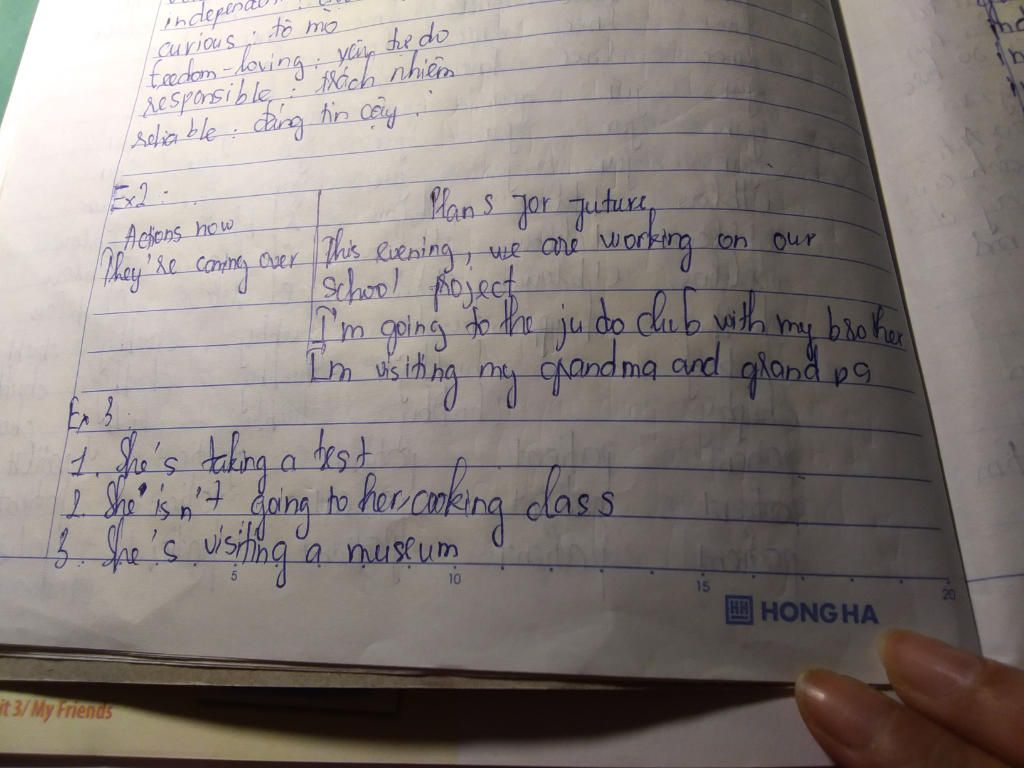 curious : tò mò
feedom-loving : yêu tự do
responsible : trách nhiệm
reliable : đáng tin cậy .
Ex2 :
Actions now
Plans for future
They're coming over
This evening, we are working on our
school project
I'm going to the ju do club with my brother
I'm visiting my grandma and grand pa
Ex 3 :
1. She's taking a test
2. She isn't going to her cooking class
3. She's visiting a museum
5 10 15 20
HH HONG HA
it 3/ My Friends